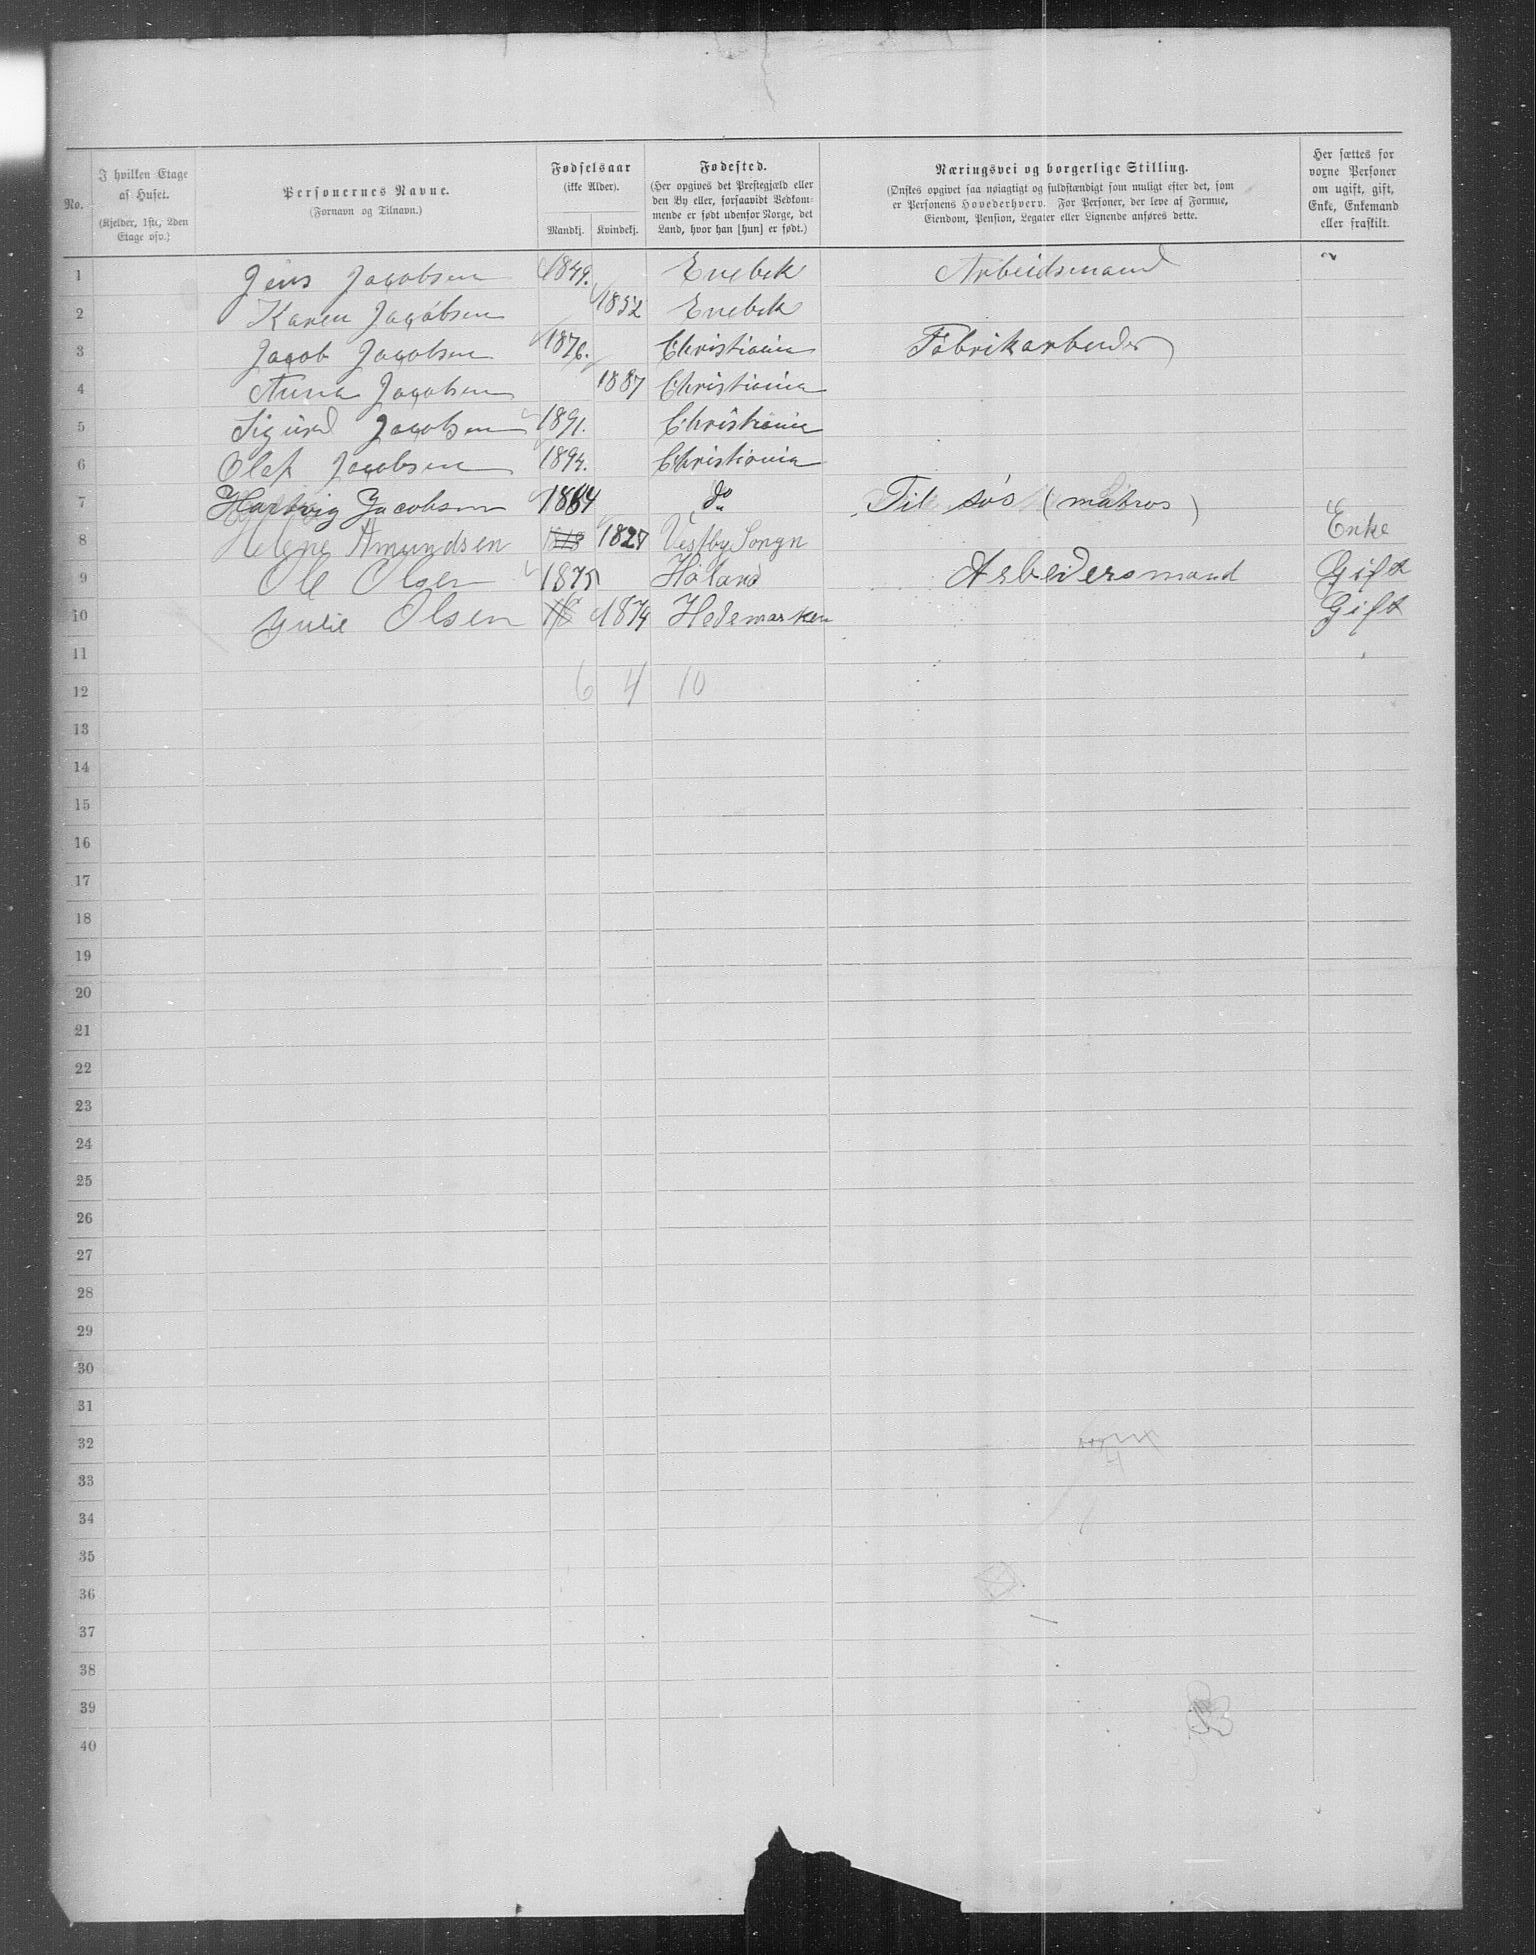 No. | I hvilken Etage af Huset. (Kjelder, 1ste, 2den Etage osv.) | Personernes Navne. (Fornavn og Tilnavn.) | Fødselsaar (ikke Alder). Mandkj. | Kvindekj. | Fødested. (Her opgives det Prestegjæld eller den By eller, forsaavidt Vedkommende er født udenfor Norge, det Land, hvor han [hun] er født.) | Næringsvei og borgerlige Stilling. (Ønskes opgivet saa nøiagtigt og fuldstændigt som muligt efter det, som er Personens Hovederhverv. For Personer, der leve af Formue, Eiendom, Pension, Legater eller Lignende anføres dette. | Her sættes for voxne Personer om ugift, gift, Enke, Enkemand eller fraskilt.
1 Jens Jacobsen 1849. Enebek Arbeidsmand
2 Karen Jacobsen 1852 Enebek
3 Jacob Jacobsen 1876. Christiania Fabrikarbeider
4 Anna Jacobsen 1887 Christiania
5 Sigurd Jacobsen 1891. Christiania
6 Olaf Jacobsen 1894. Christiania
7 Hartvig Jacobsen 1864 do Til søs (matros)
8 Helene Amundsen 1827 Vestby Songn Enke
9 Ole Olsen 1875 Høland Arbeidersmand Gift
10 Julie Olsen 1874 Hedemarken Gift
11
12 6 4 10
13
14
15
16
17
18
19
20
21
22
23
24
25
26
27
28
29
30
31
32
33
34
35
36
37
38
39
40